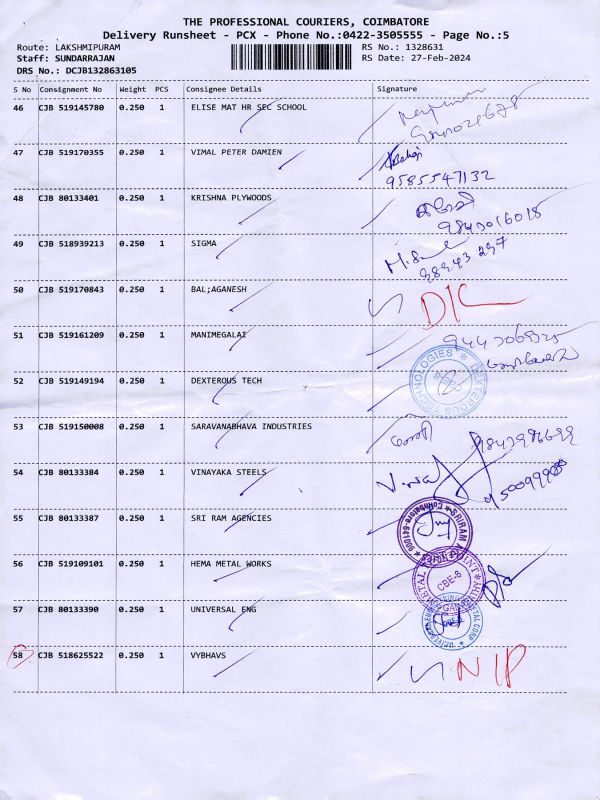 THE PROFESSIONAL COURIERS, COIMBATORE
Delivery Runsheet - PCX - Phone No.:0422-3505555 - Page No.:5
Route: LAKSHMIPURAM
RS No.: 1328631
Staff: SUNDARRAJAN
RS Date: 27-Feb-2024
DRS No.: DCJB132863105
S No Consignment No Weight PCS Consignee Details Signature
46 CJB 519145780 0.250 1 ELISE MAT HR SEC SCHOOL
47 CJB 519170355 0.250 1 VIMAL PETER DAMIEN
9585547132
48 CJB 80133401 0.250 1 KRISHNA PLYWOODS
9843016018
49 CJB 518939213 0.250 1 SIGMA
50 CJB 519170843 0.250 1 BAL;AGANESH D/C
51 CJB 519161209 0.250 1 MANIMEGALAI
52 CJB 519149194 0.250 1 DEXTEROUS TECH
DEXTEROUS TECHNOLOGIES
53 CJB 519150008 0.250 1 SARAVANABHAVA INDUSTRIES
54 CJB 80133384 0.250 1 VINAYAKA STEELS
55 CJB 80133387 0.250 1 SRI RAM AGENCIES
56 CJB 519109101 0.250 1 HEMA METAL WORKS
CBE-6
57 CJB 80133390 0.250 1 UNIVERSAL ENG
58 CJB 518625522 0.250 1 VYBHAVS NIP